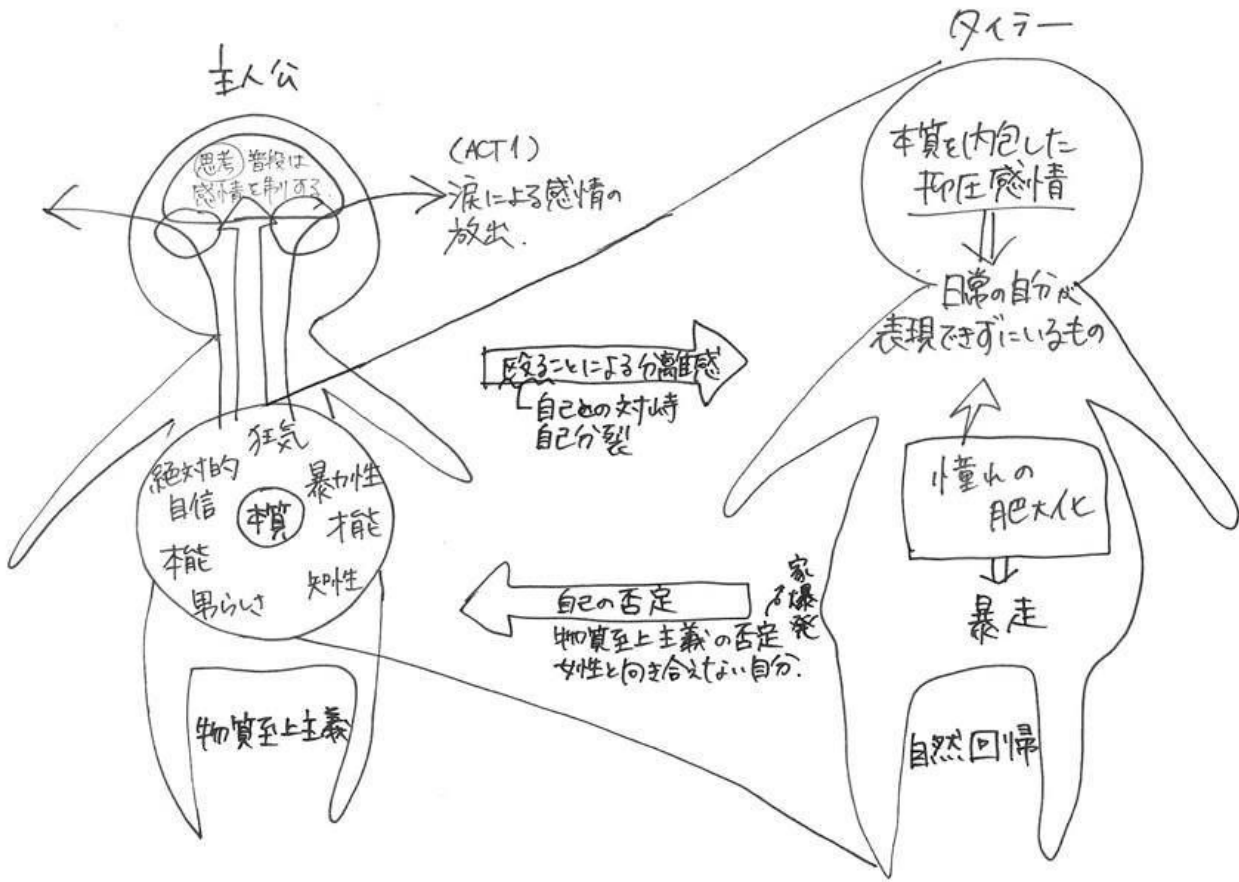 主人公
思考 普段は
感情を制する.
(ACT1)
涙による感情の
放出.
絶対的
自信
狂気
暴力性
本質
才能
本能
知性
男らしさ
物質至上主義
殴ることによる分離感
自己との対峙
自己分裂
家爆発
自己の否定
物質至上主義の否定
女性と向き合えない自分.
タイラー
本質を内包した
抑圧感情
日常の自分が
表現できずにいるもの
憧れの
肥大化
暴走
自然回帰